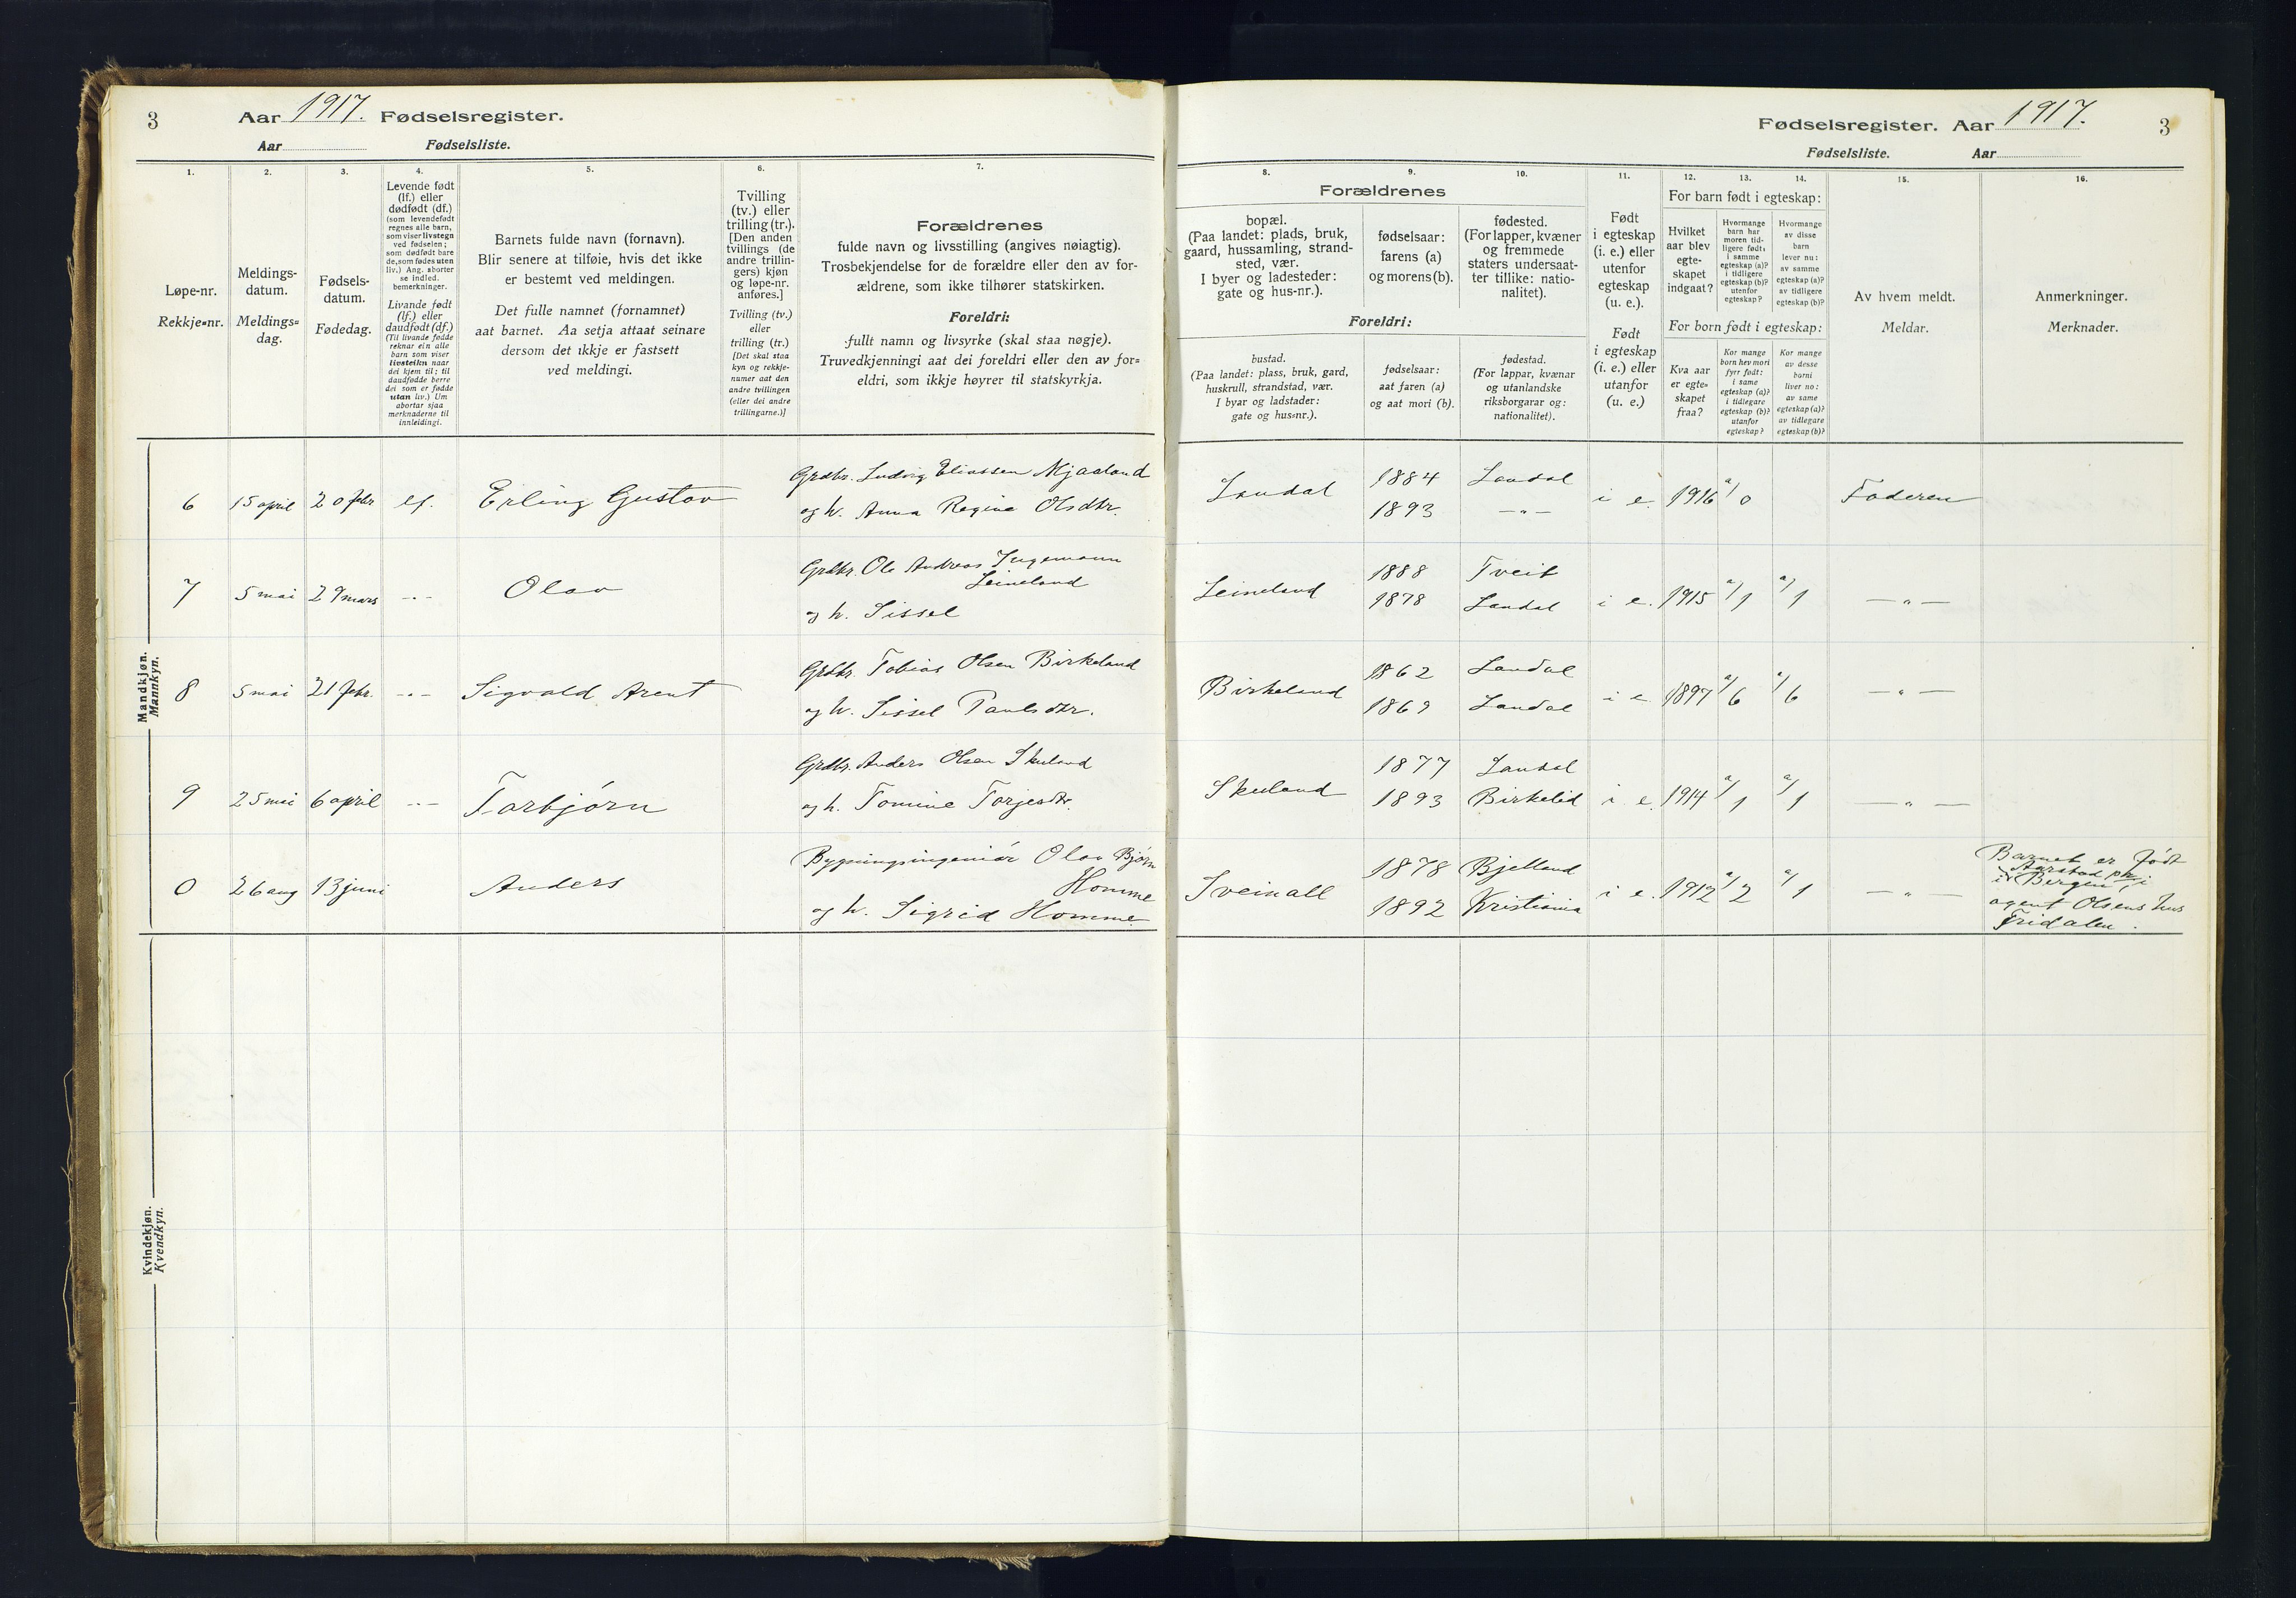 3 Aar 1917. Fødselsregister.
Aar Fødselsliste.
1.
Løpe-nr.
Rekkje-nr.
2.
Meldings-
datum.
Meldings-
dag.
3.
Fødsels-
datum.
Fødedag.
4.
Levende født
(lf.) eller
dødfødt (df.)
(som levendefødt
regnes alle barn,
som viser livstegn
ved fødselen;
som dødfødt bare
de, som fødes uten
liv.) Ang. aborter
se indled.
bemerkninger.
Livande født
(lf.) eller
daudfødt (df.)
(Til livande fødde
reknar ein alle
barn som viser
livsteikn naar
dei kjem til; til
daudfødde berre
dei som er fødde
utan liv.) Um
abortar sjaa
merknaderne til
innleidingi.
5.
Barnets fulde navn (fornavn).
Blir senere at tilføie, hvis det ikke
er bestemt ved meldingen.
Det fulle namnet (fornamnet)
aat barnet. Aa setja attaat seinare
dersom det ikkje er fastsett
ved meldingi.
6.
Tvilling
(tv.) eller
trilling (tr.).
[Den anden
tvillings (de
andre trillin-
gers) kjøn
og løpe-nr.
anføres.]
Tvilling (tv.)
eller
trilling (tr.)
[Det skal staa
kyn og rekkje-
numer aat den
andre tvillingen
(eller dei andre
trillingarne.)]
7.
Forældrenes
fulde navn og livsstilling (angives nøiagtig).
Trosbekjendelse for de forældre eller den av for-
ældrene, som ikke tilhører statskirken.
Foreldri:
fullt namn og livsyrke (skal staa nøgje).
Truvedkjenningi aat dei foreldri eller den av for-
eldri, som ikkje høyrer til statskyrkja.
Mandkjøn.
Mannkyn.
6 15 april 20 febr lf. Erling Gustav Grdbr. Ludvig Eliassen Mjaaland
og h. Anna Regine Olsdtr.
7 5 mai 29 mars -"- Olav Grdbr. Ole Andreas Ingemann
Leineland
og h. Sissel
8 5 mai 21 febr. -"- Sigvald Arent Grdbr. Tobias Olsen Birkeland
og h. Sissel Paulsdtr.
9 25 mai 6 april -"- Torbjörn Grdbr. Anders Olsen Skuland
og h. Tomine Torjesdtr.
0 26 aug 13 juni Anders Bygningsingeniör Olav Bjørn
Homme
og h. Sigrid Homme.
Kvindekjøn.
Kvendkyn.
Fødselsregister. Aar 1917. 3
Fødselsliste. Aar
8. 9. 10.
Forældrenes
bopæl.
(Paa landet: plads, bruk,
gaard, hussamling, strand-
sted, vær.
I byer og ladesteder:
gate og hus-nr.).
fødselsaar:
farens (a)
og morens (b).
fødested.
(For lapper, kvæner
og fremmede
staters undersaat-
ter tillike: natio-
nalitet).
Foreldri:
bustad.
(Paa landet: plass, bruk, gard,
huskrull, strandstad, vær.
I byar og ladstader:
gate og hus-nr.).
fødselsaar:
aat faren (a)
og aat mori (b).
fødestad.
(For lappar, kvænar
og utanlandske
riksborgarar og:
nationalitet).
11.
Født
i egteskap
(i. e.) eller
utenfor
egteskap
(u. e.).
Født
i egteskap
(i. e.) eller
utanfor
(u. e.)
12. 13. 14.
For barn født i egteskap:
Hvilket
aar blev
egte-
skapet
indgaat?
Hvormange
barn har
moren tid-
ligere født:
i samme
egteskap (a)?
i tidligere
egteskap (b)?
utenfor
egteskap?
Hvormange
av disse
barn
lever nu:
av samme
egteskap (a)?
av tidligere
egteskap (b)?
For born født i egteskap:
Kva aar
er egte-
skapet
fraa?
Kor mange
born hev mori
fyrr født:
i same
egteskap (a)?
i tidlegare
egteskap (b)?
utanfor
egteskap?
Kor mange
av desse
borni
liver no:
av same
egteskap (a)?
av tidlegare
egteskap (b)?
15.
Av hvem meldt.
Meldar.
16.
Anmerkninger.
Merknader.
Laudal 1884 Laudal i e. 1916 a/0 Faderen
1893 -"-
Leineland 1888 Tveit i e. 1915 a/1 a/1 -"-
1878 Laudal
Birkeland 1862 Laudal i e 1897 a/6 a/6 -"-
1869 Laudal
Skuland 1877 Laudal i e. 1914 a/1 a/1 -"-
1893 Birkelid
Sveinall 1878 Bjelland i e. 1912 a/2 a/1 -"-
1892 Kristiania
Barnet er født
Aarstad
i Bergen, i
agent Olsens hus
Fridalen.